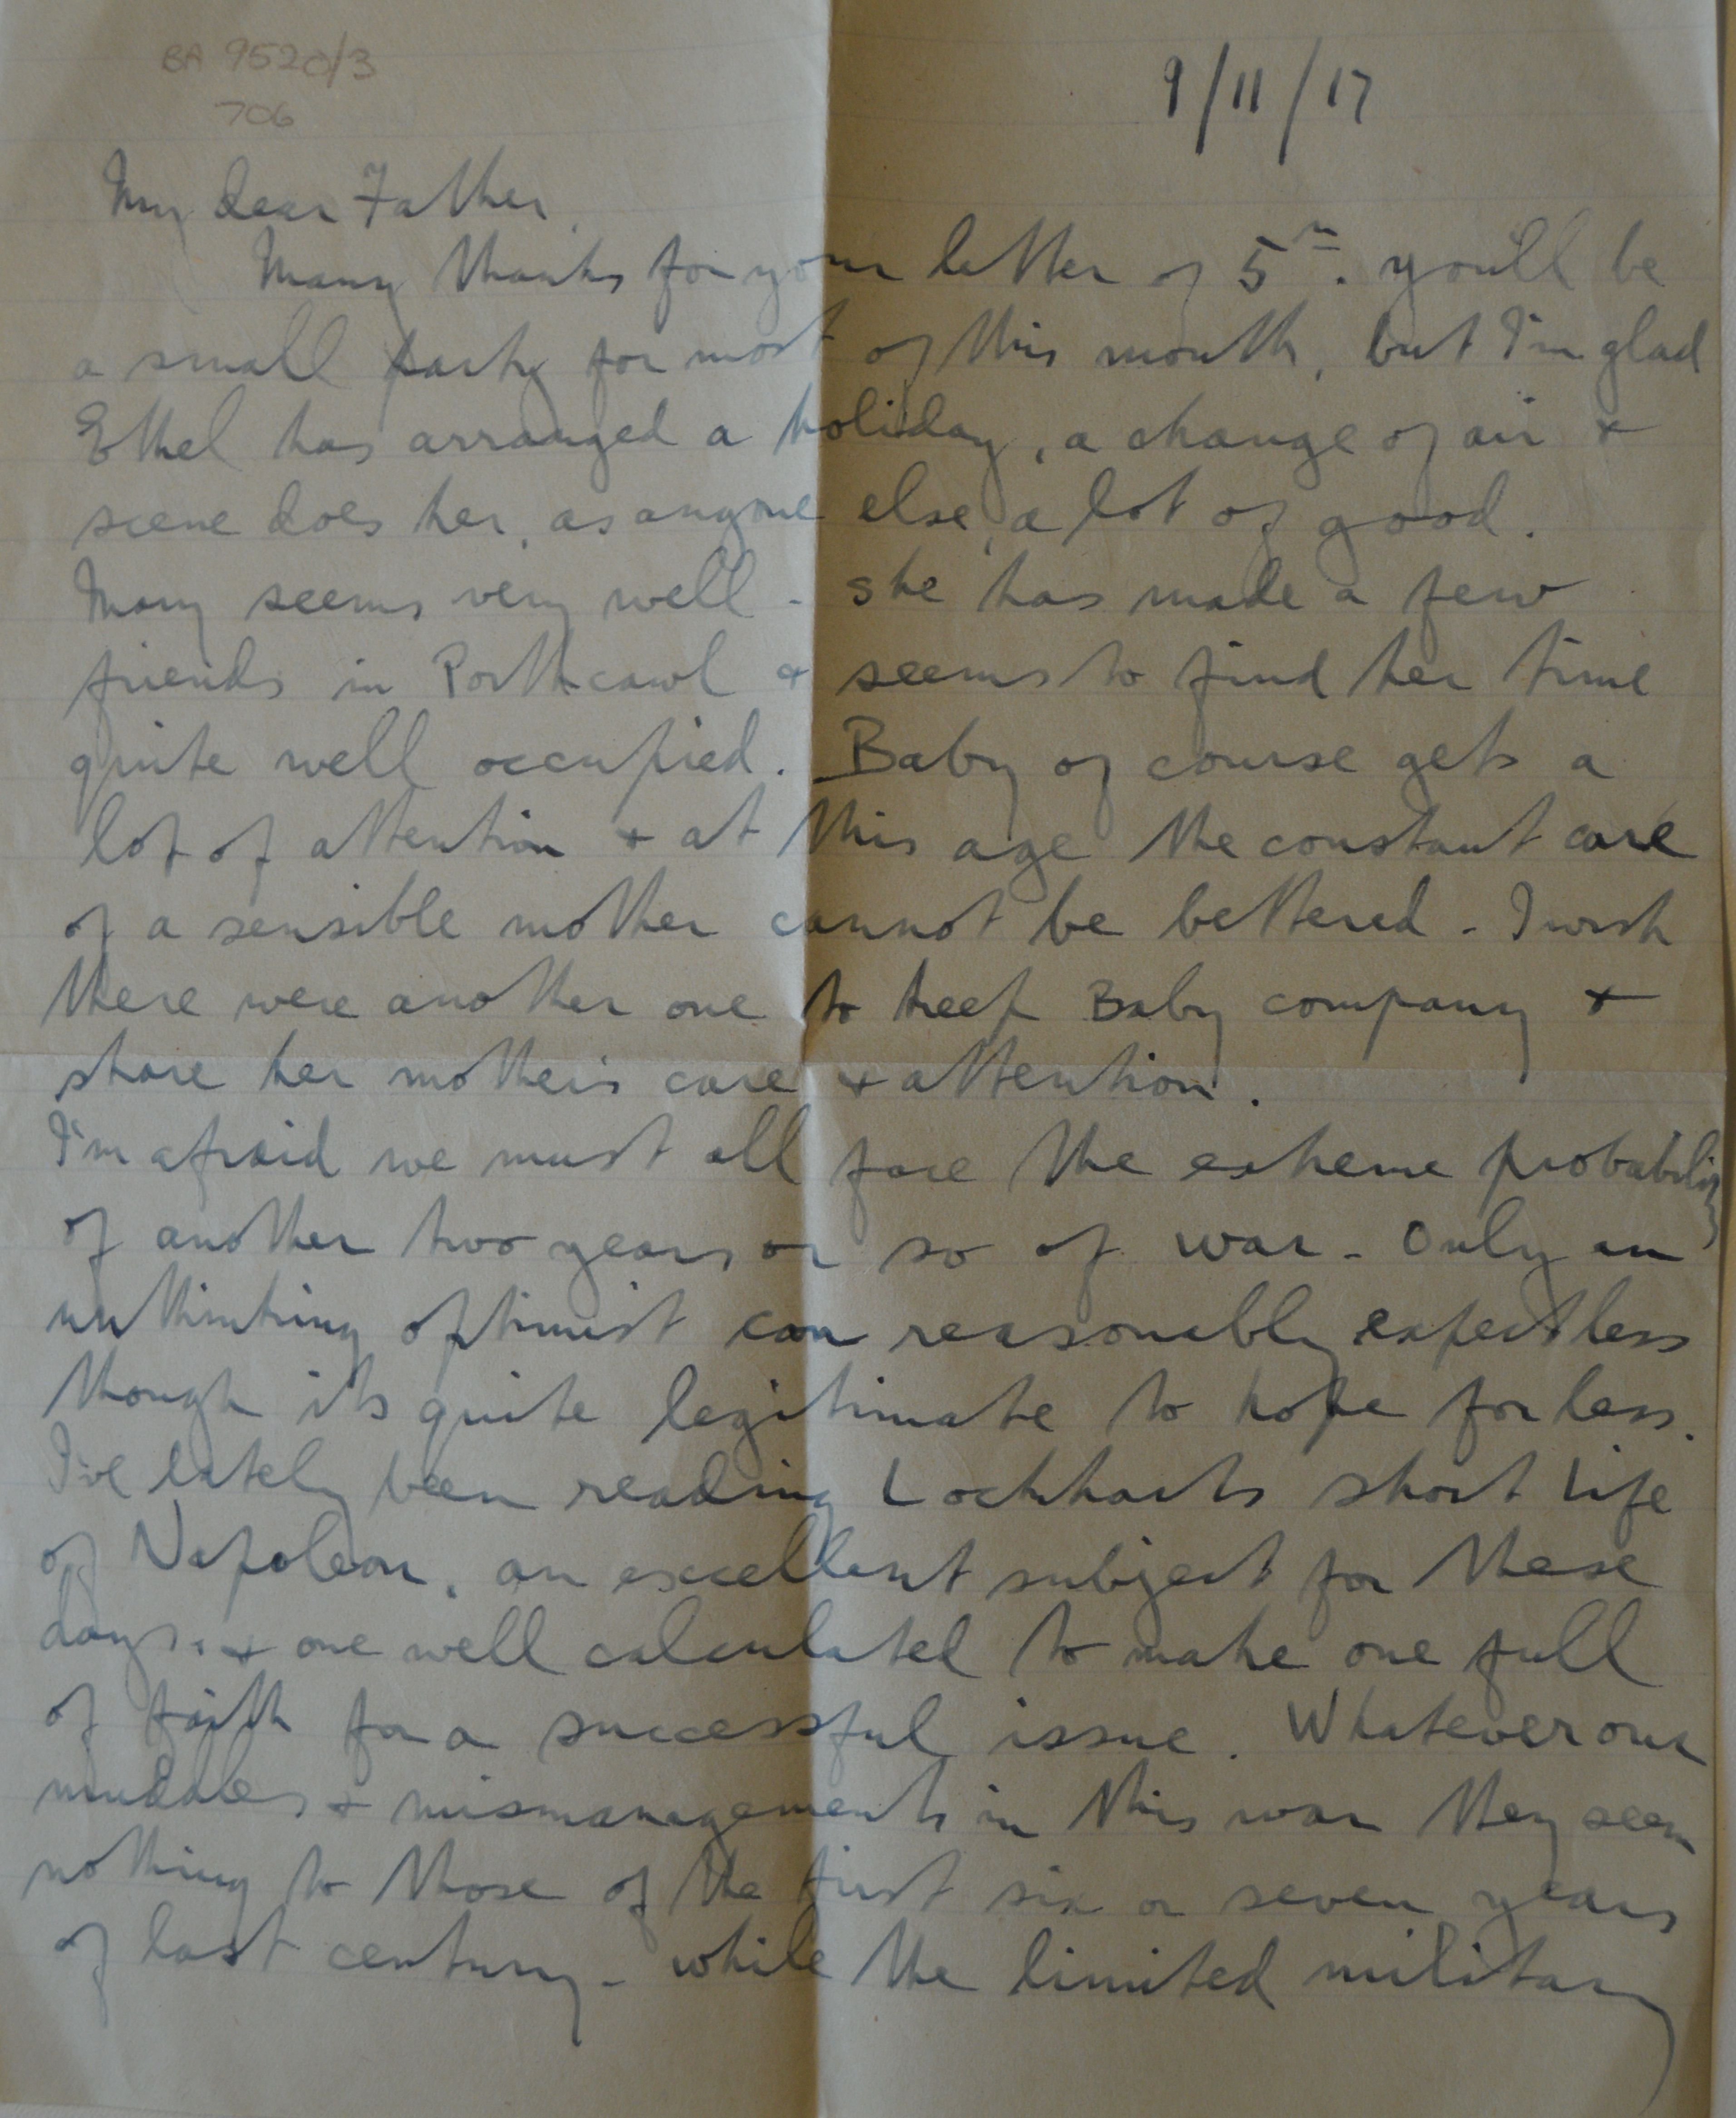 BA 9520/3
706
9/11/17
My dear Father,
Many thanks for your letter of 5th. you'll be
a small party for most of this month, but I'm glad
Ethel has arranged a holiday, a change of air &
scene does her, as anyone else, a lot of good.
Mary seems very well - she has made a few
friends in Porthcawl & seems to find her time
quite well occupied. Baby of course gets a
lot of attention & at this age the constant care
of a sensible mother cannot be bettered - I wish
there were another one to keep Baby company &
share her mother's care & attention.
I'm afraid we must all face the extreme probability
of another two years or so of war - Only an
unthinking optimist can reasonably expect less
though its quite legitimate to hope for less.
I've lately been reading Lockharts short Life
of Napoleon, an excellent subject for these
days, & one well calculated to make one full
of faith for a successful issue. Whatever our
muddles & mismanagements in this war they seem
nothing to those of the first six or seven years
of last century - while the limited military